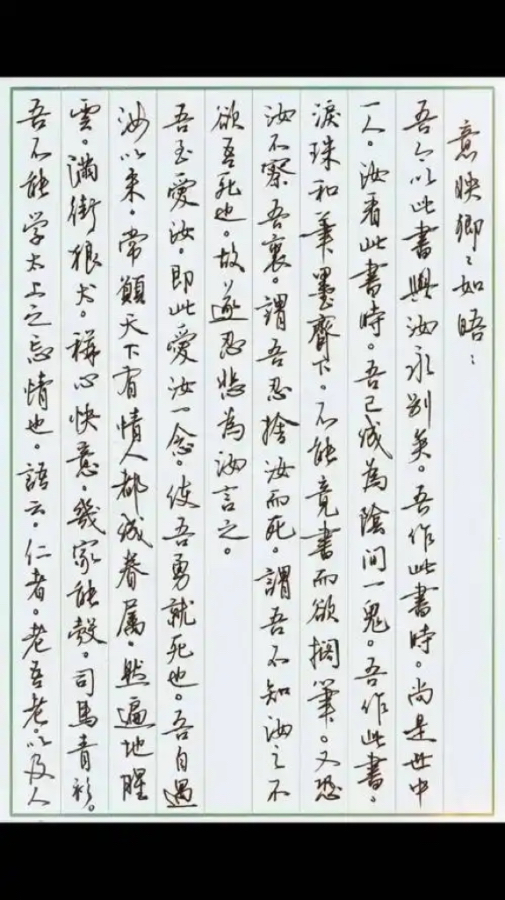 意映卿卿如晤：
吾今以此書與汝永别矣。吾作此書時。尚是世中
一人。汝看此書時。吾已成為陰間一鬼。吾作此書。
淚珠和筆墨齊下。不能竟書而欲擱筆。又恐
汝不察吾衷。謂吾忍捨汝而死。謂吾不知汝之不
欲吾死也。故遂忍悲為汝言之。
吾至愛汝。即此愛汝一念。使吾勇就死也。吾自遇
汝以來。常願天下有情人都成眷屬。然遍地腥
雲。滿街狼犬。稱心快意。幾家能彀。司馬青衫。
吾不能学太上之忘情也。語云。仁者。老吾老。以及人